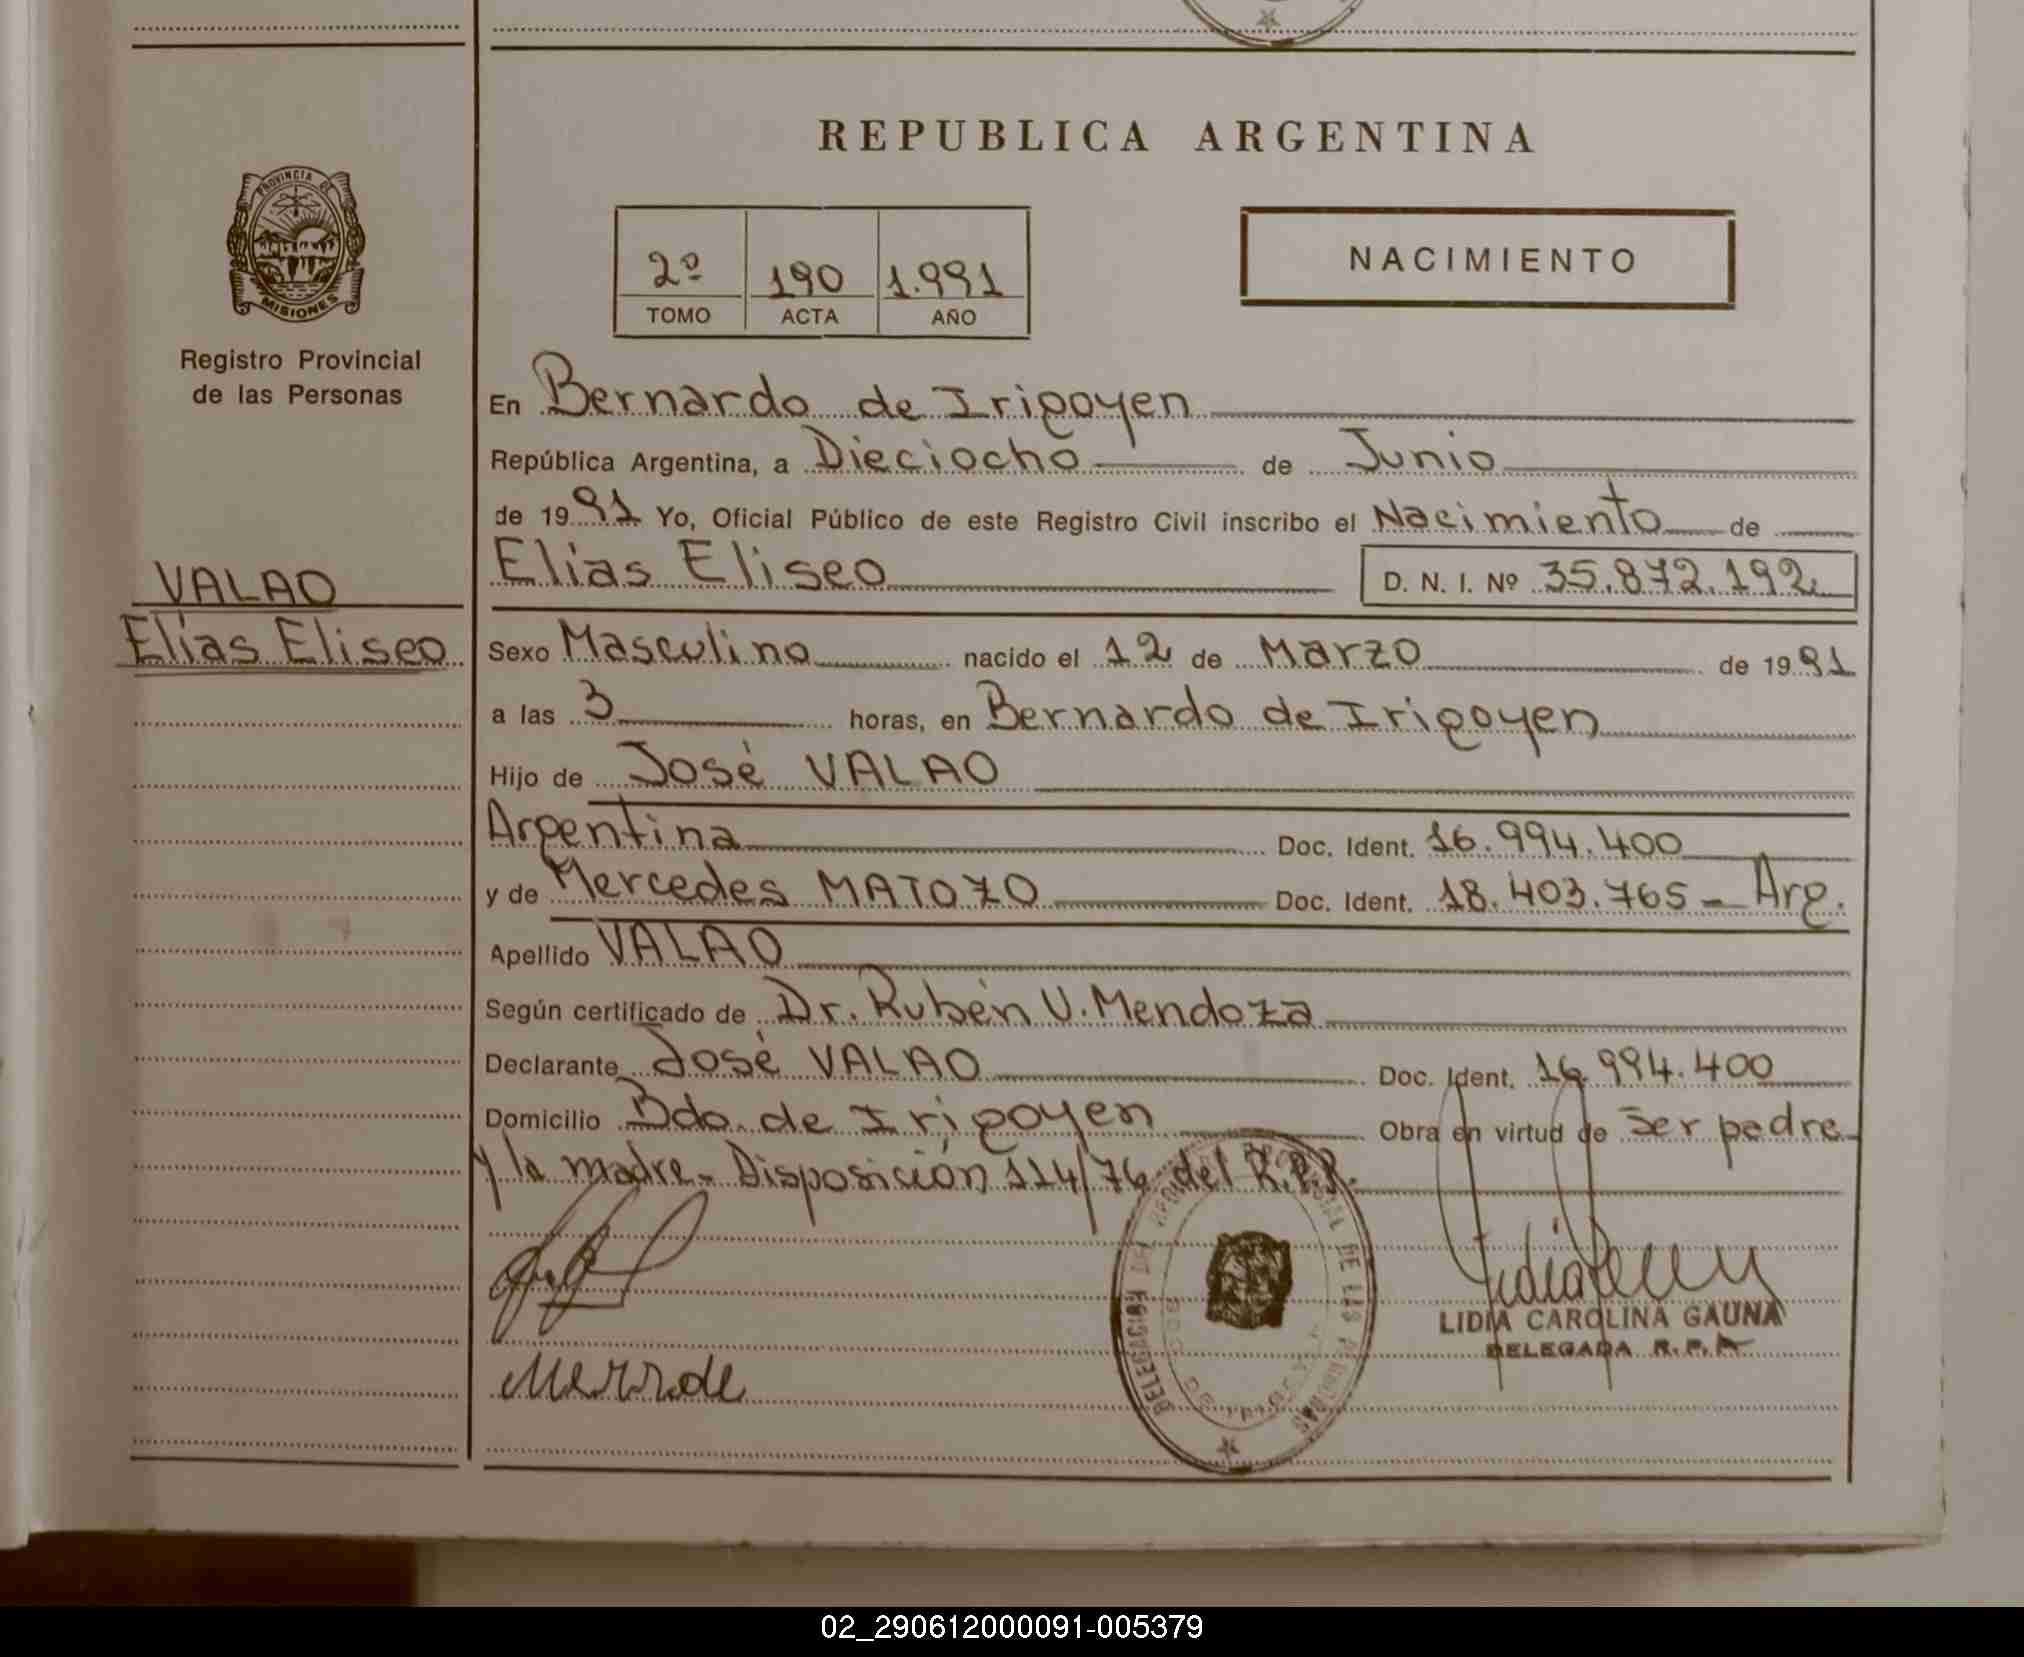 REPUBLICA ARGENTINA
PROVINCIA DE
MISIONES
Registro Provincial
de las Personas
2º 190 1.991
TOMO ACTA AÑO
NACIMIENTO
En Bernardo de Irigoyen
República Argentina, a Dieciocho de Junio
de 1991 Yo, Oficial Público de este Registro Civil inscribo el Nacimiento de
VALAO
Elías Eliseo
Elías Eliseo D. N. I. Nº 35.872.192
Sexo Masculino nacido el 12 de Marzo de 1991
a las 3 horas, en Bernardo de Irigoyen
Hijo de José VALAO
Argentina Doc. Ident. 16.994.400
y de Mercedes MATOZO Doc. Ident. 18.403.765 - Arg.
Apellido VALAO
Según certificado de Dr. Rubén U. Mendoza
Declarante José VALAO Doc. Ident. 16.994.400
Domicilio Bdo. de Irigoyen Obra en virtud de Ser padre
y la madre - Disposición 114/76 del R.P.P.
LIDIA CAROLINA GAUNA
DELEGADA R. P. P.
02_290612000091-005379